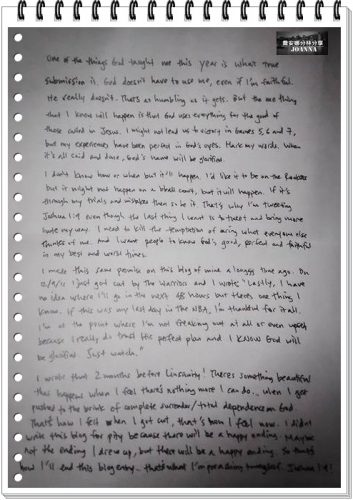 JOANNA
One of the things God taught me this year is what true
submission is. God doesn't have to use me, even if I'm faithful.
He really doesn't. That's as humbling as it gets. But the one thing
that I know will happen is that God uses everything for the good of
those called in Jesus. I might not lead us to victory in Games 5, 6 and 7,
but my experiences have been perfect in God's eyes. Mark my words. When
it's all said and done, God's name will be glorified.
I don't know how or when but it'll happen. I'd like it to be on the Rockets
but it might not happen on a bball court, but it will happen. If it's
through my trials and mistakes then so be it. That's why I'm tweeting
Joshua 1:9 even though the last thing I want is to tweet and bring more
hate my way. I need to kill the temptation of caring what everyone else
thinks of me. And I want people to know God's good, perfect and faithful
in my best and worst times.
I made this same promise on this blog of mine a longgg time ago. On
12/9/11 I just got cut by the Warriors and I wrote "Lastly, I have
no idea where I'll go in the next 48 hours but there's one thing I
know. If this was my last day in the NBA, I'm thankful for it all.
I'm at the point where I'm not freaking out at all or even upset
because I really do trust His perfect plan and I KNOW God will
be glorified. Just watch."
I wrote that 2 months before Linsanity! There's something beautiful
that happens when I feel there's nothing more I can do... when I get
pushed to the brink of complete surrender/total dependence on God.
That's how I felt when I got cut, that's how I feel now. I didn't
write this blog for pity because there will be a happy ending. Maybe
not the ending I drew up, but there will be a happy ending. So that's
how I'll end this blog entry... that's what I'm preaching to myself. Joshua 1:9!